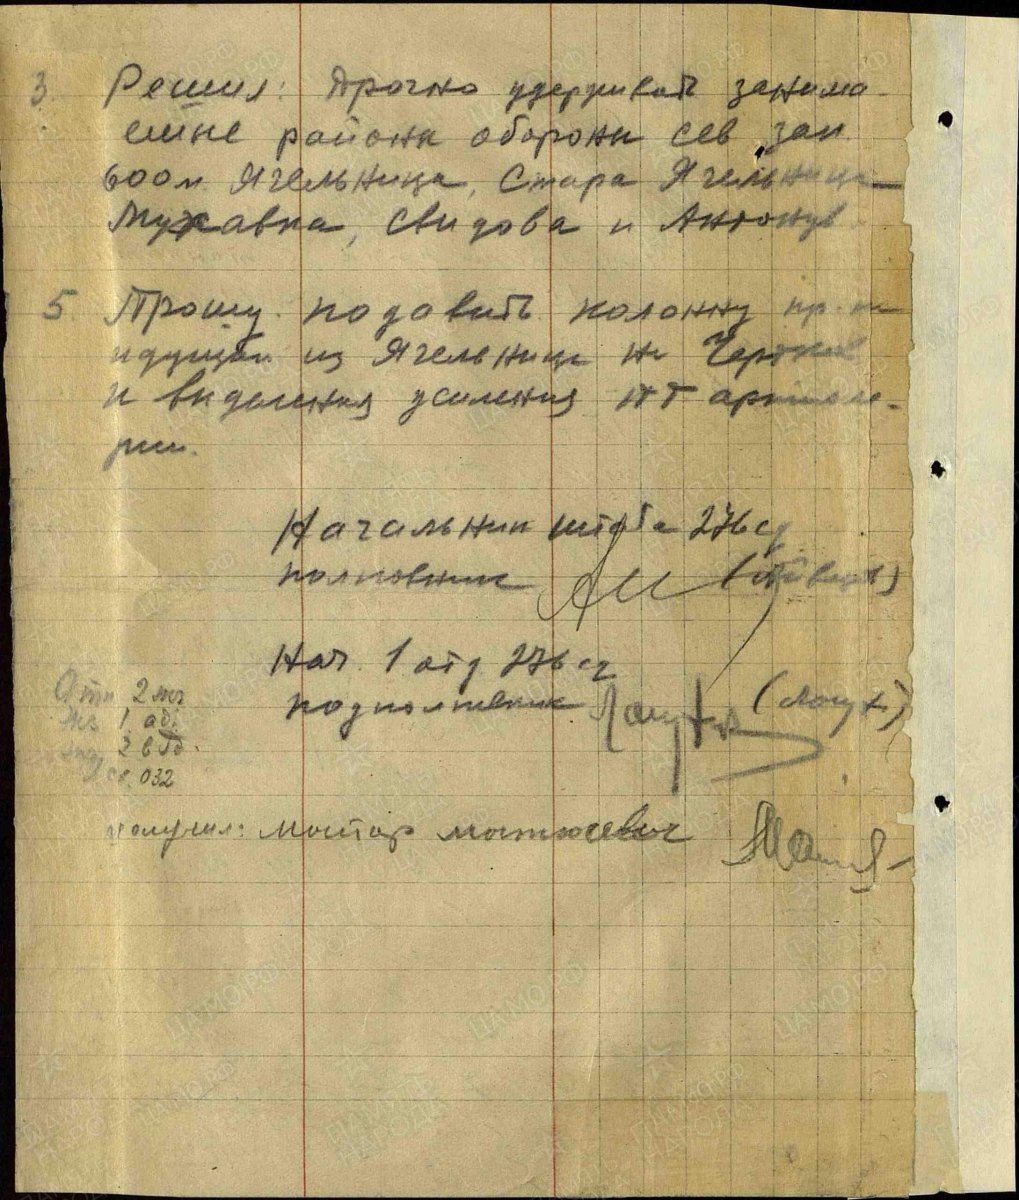 3. Решил: Прочно удерживать занима-
емые районы обороны сев зап
600 м. Ягельница, Стара Ягельница
Мухавка, Свидова и Антонув
5. Прошу подавить колонну пр-ка
идущей из Ягельница на Чертков
и выделения усиления ПТ артиле-
рии.
Начальник штаба 276 сд
полковник
Нач. 1 отд 276 сд
подполковник
Отп 2 экз
1
2
032
получил: майор Маткевич